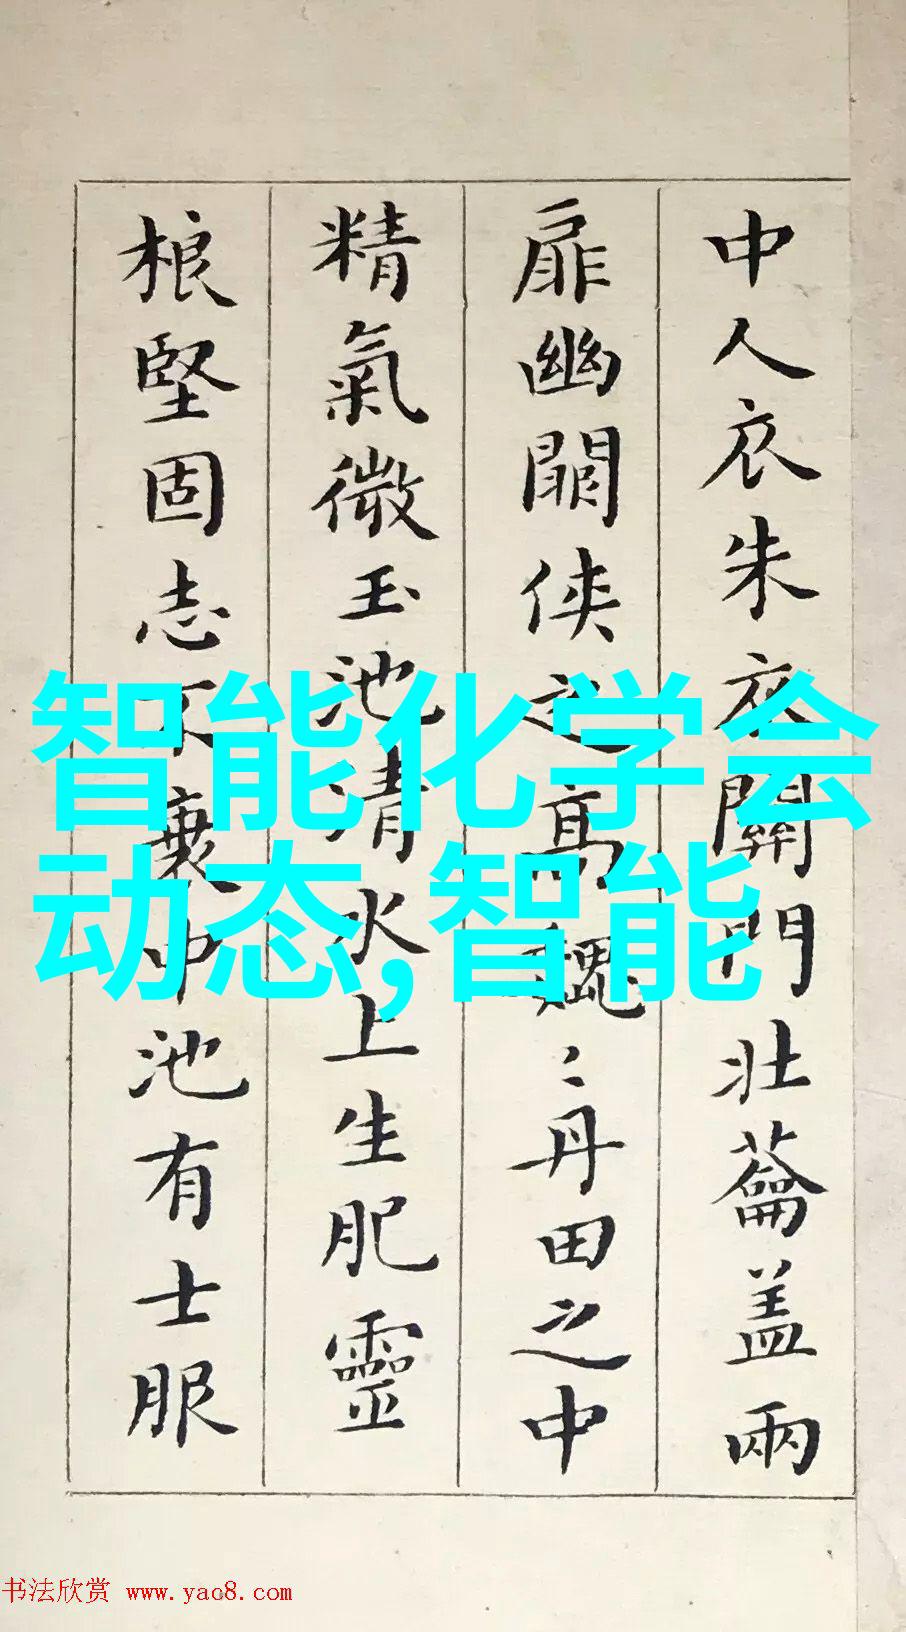 中人衣朱衣關門壯蘥盖兩
扉幽關侠之高魏〻丹田之中
精氣微玉池清水上生肥靈
根堅固志不衰中池有士服
智能化学会
动态,智能
书法欣赏 www.yac8.com